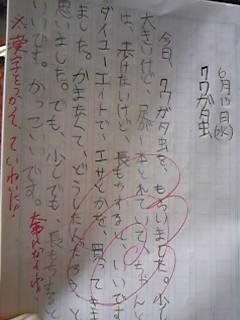 6月15日(水)
クワガタ虫
今日、クワガタ虫を、もらいました。少し
大きいけど、足が一本とれていて、ちゃんと
は、歩けないけど、長もちするといいです
ダイユーエイトで、エサとかを、買ってき
ました。かまなくて、どうしたんだろうと
思いました。でも、少しでも、長もちすると
いいです。かっこいいです。
※漢字をつかって、ていねいだ!